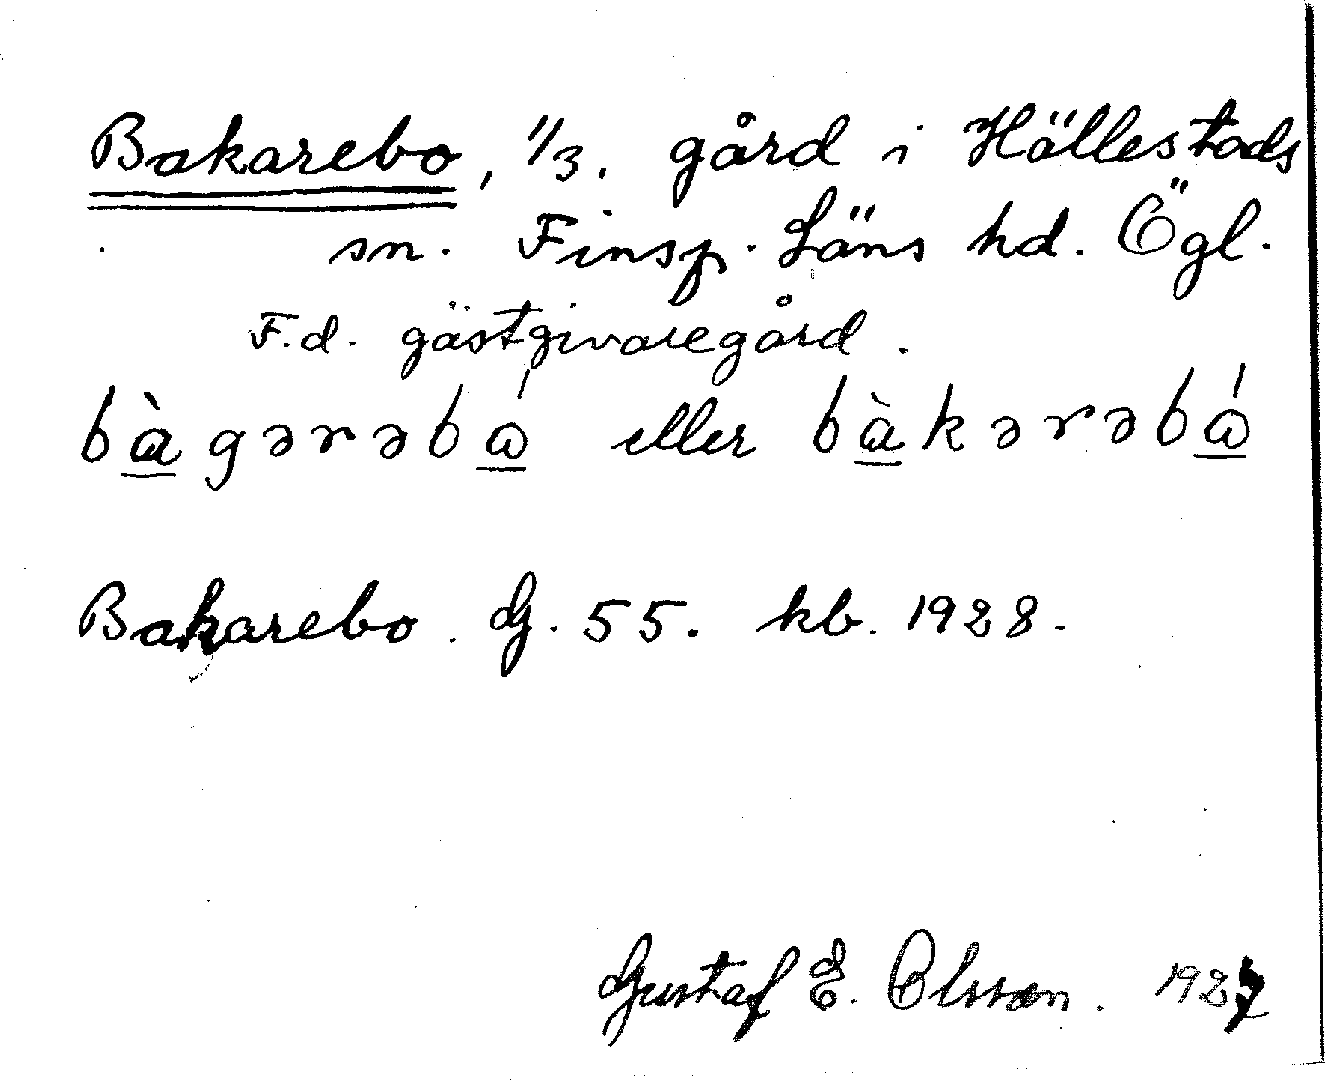 Bakarebo, 1/3. gård i Hällestads
sn. Finsp. Läns hd. Ögl.
F.d. gästgivaregård.
bàgərəbɷ́ eller bàkərəbɷ́
Bakarebo. G. 55. kb. 1928.
Gustaf E. Olsson. 1927